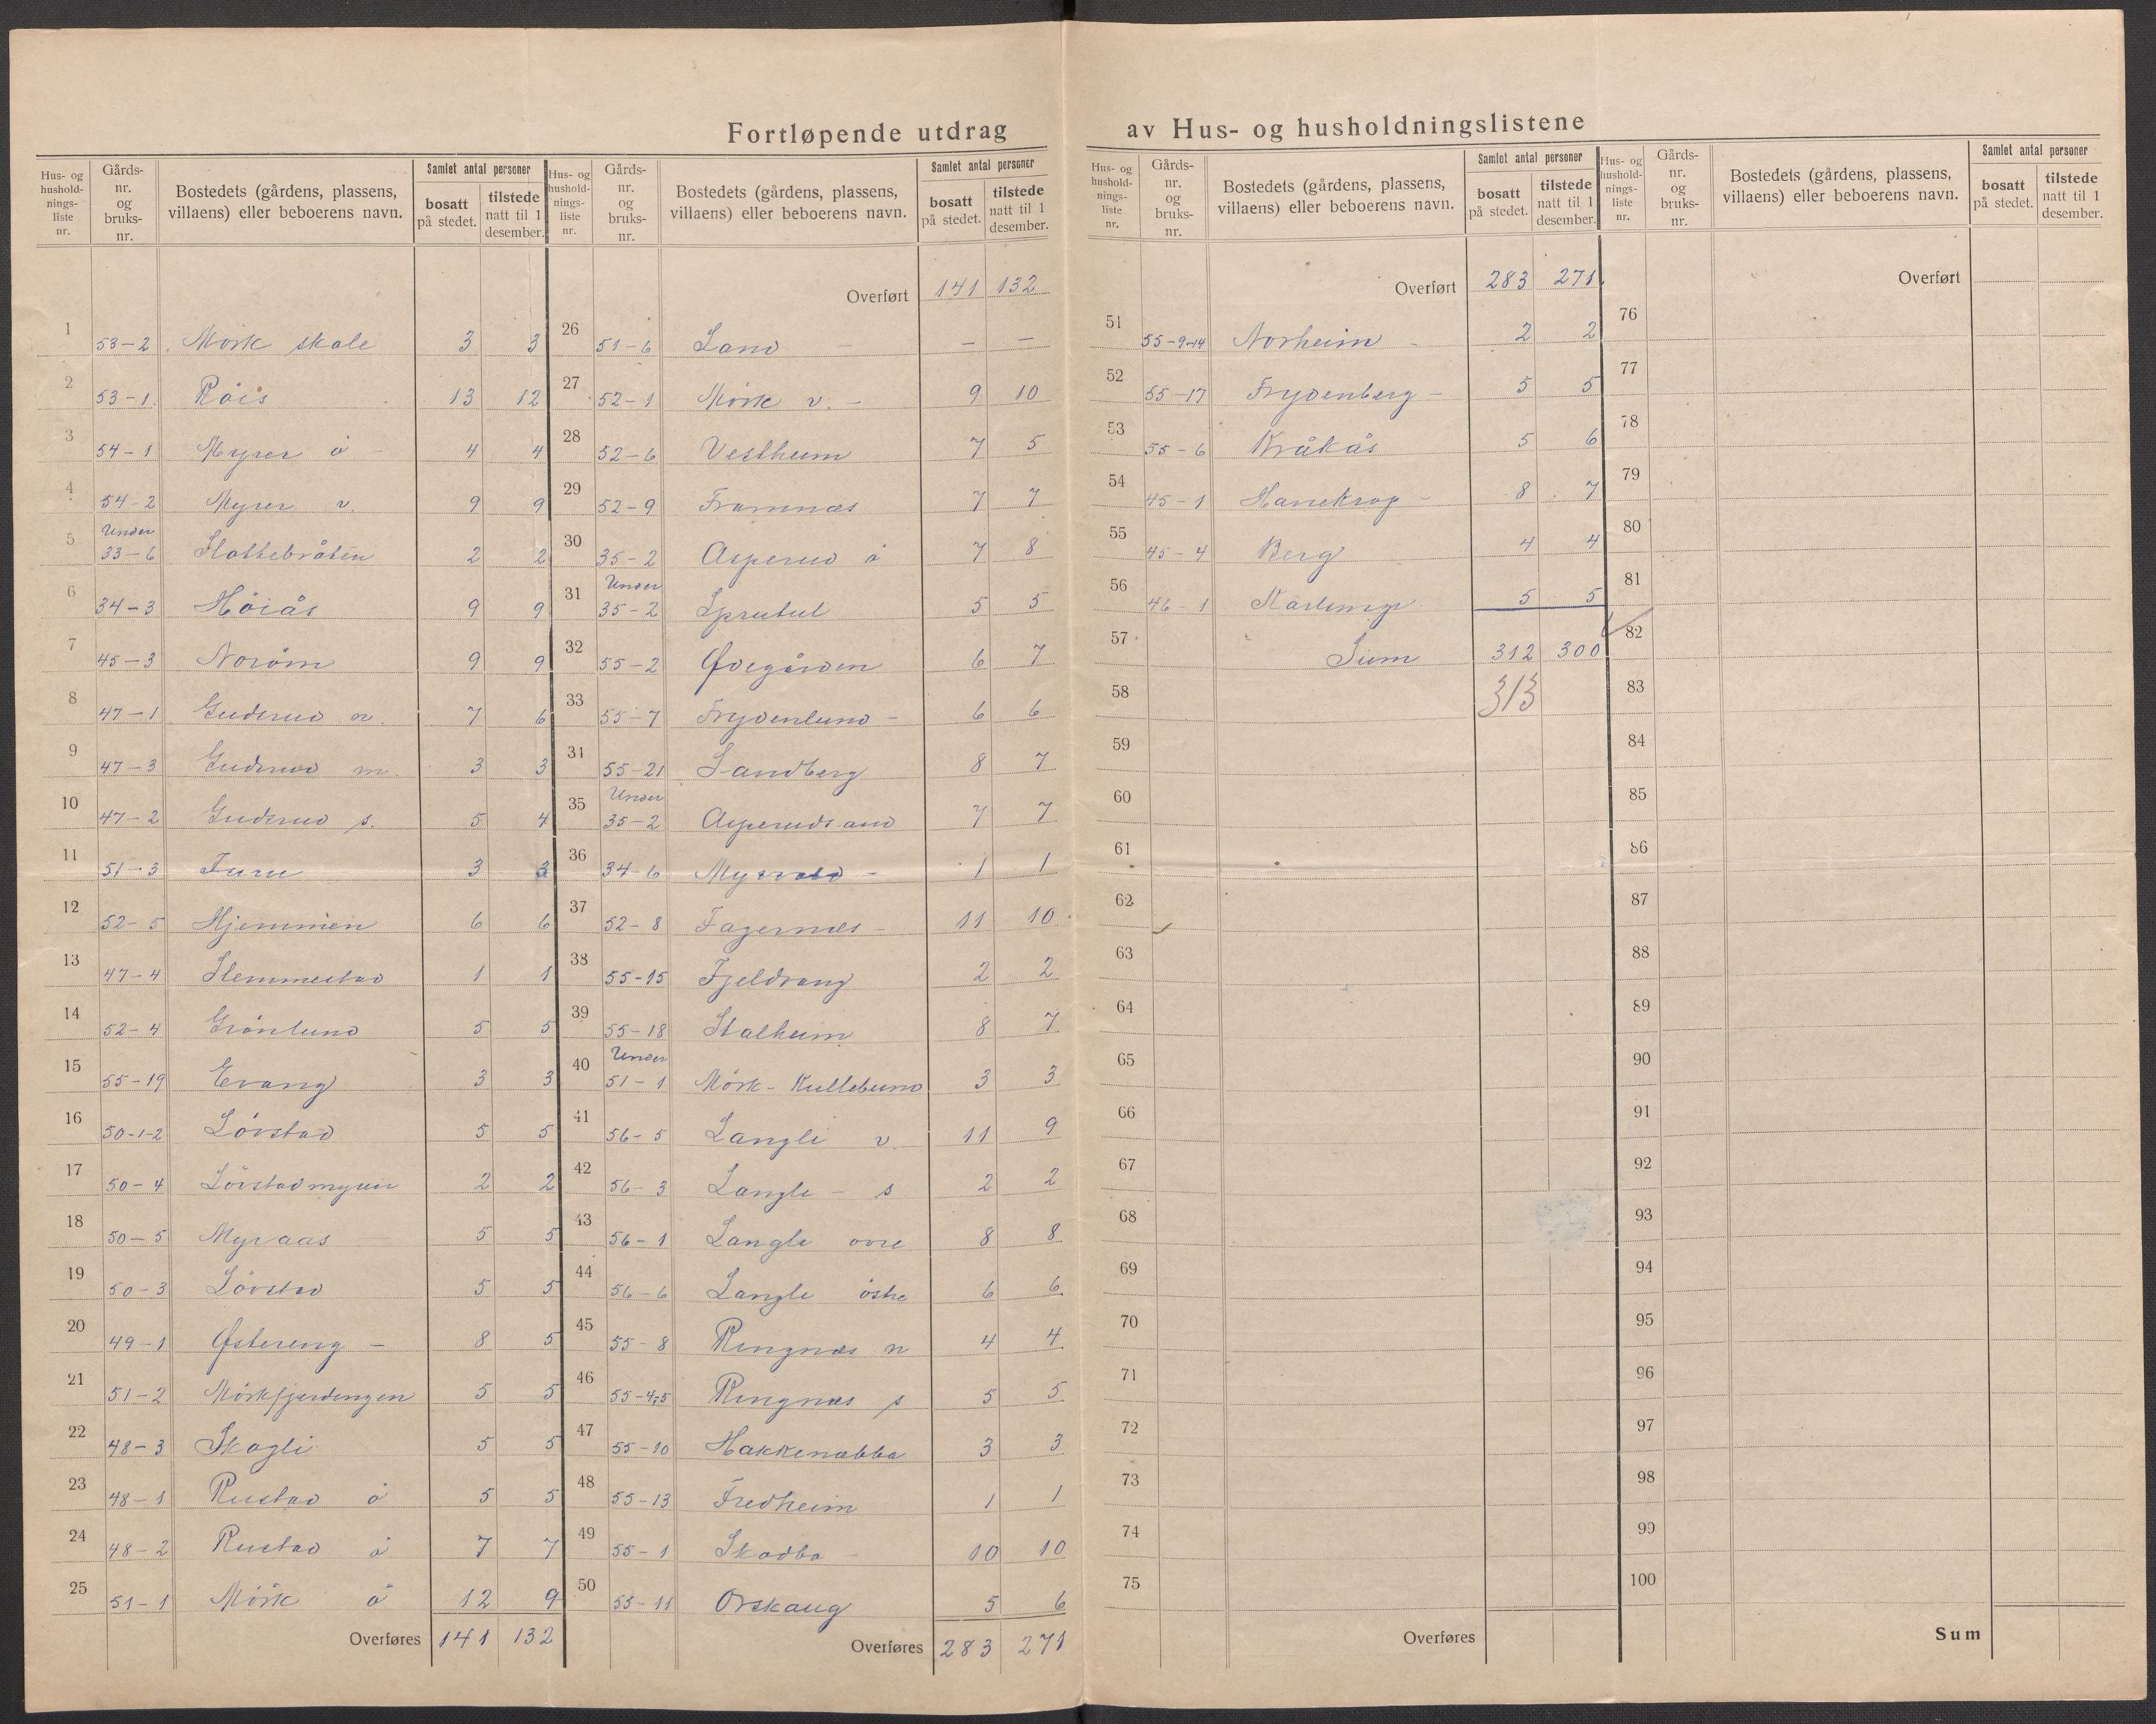 Fortløpende utdrag av Hus- og husholdningslistene
Hus- og husholdnings-liste nr. | Gårds-nr. og bruks-nr. | Bostedets (gårdens, plassens, villaens) eller beboerens navn. | Samlet antal personer | bosatt på stedet. | tilstede natt til 1 desember.
1 53-2 Mörk skole 3 3
2 53-1 Röis 13 12
3 54-1 Myrer ö 4 4
4 54-2 Myrer v. 9 9
5 Under 33-6 Slottebråten 2 2
6 34-3 Höiås 9 9
7 45-3 Noröm 9 9
8 47-1 Guderud n. 7 6
9 47-3 Guderud m. 3 3
10 47-2 Guderud s. 5 4
11 51-3 Furu 3 3
12 52-5 Hjemmien 6 6
13 47-4 Slemmestad 1 1
14 52-4 Grönlund 5 5
15 55-19 Evang 3 3
16 50-1-2 Lövstad 5 5
17 50-4 Lövstadmyren 2 2
18 50-5 Myraas 5 5
19 50-3 Lövstad 5 5
20 49-1 Østereng - 8 5
21 51-2 Mörkfjerdingen 5 5
22 48-3 Skogli 5 5
23 48-1 Rustad ö 5 5
24 48-2 Rustad ö 7 7
25 51-1 Mörk ö 12 9
Overføres 141 132
Hus- og husholdnings-liste nr. | Gårds-nr. og bruks-nr. | Bostedets (gårdens, plassens, villaens) eller beboerens navn. | Samlet antal personer | bosatt på stedet. | tilstede natt til 1 desember.
Overført 141 132
26 51-6 Land - - -
27 52-1 Mörk v. - 9 10
28 52-6 Vestheim 7 5
29 52-9 Framnæs 7 7
30 35-2 Asperud ö 7 8
31 Under 35-2 Sprutul 5 5
32 55-2 Ødegården 6 7
33 55-7 Frydenlund - 6 6
34 55-21 Sandberg 8 7
35 Under 35-2 Asperudsand 7 7
36 34-6 Myrvold - 1 1
37 52-8 Fagernæs - 11 10
38 55-15 Fjeldvang 2 2
39 55-18 Stalheim 8 7
40 Under 51-1 Mörk-Kullebund 3 3
41 56-5 Langli v. 11 9
42 56-3 Langli - s 2 2
43 56-1 Langli övre 8 8
44 56-6 Langli östre 6 6
45 55-8 Ringnæs n 4 4
46 55-4,5 Ringnæs s 5 5
47 55-10 Hakkenabba 3 3
48 55-13 Fredheim 1 1
49 55-1 Skodbo - 10 10
50 53-11 Orskaug 5 6
Overføres 283 271
Hus- og husholdnings-liste nr. | Gårds-nr. og bruks-nr. | Bostedets (gårdens, plassens, villaens) eller beboerens navn. | Samlet antal personer | bosatt på stedet. | tilstede natt til 1 desember.
Overført 283 271
51 55-9-14 Norheim - 2 2
52 55-17 Frydenberg - 5 5
53 55-6 Kråkås 5 6
54 45-1 Hanekrog - 8 7
55 45-4 Berg 4 4
56 46-1 5 5
57 Sum 312 300
58 313
59
60
61
62
63
64
65
66
67
68
69
70
71
72
73
74
75
Overføres
Hus- og husholdnings-liste nr. | Gårds-nr. og bruks-nr. | Bostedets (gårdens, plassens, villaens) eller beboerens navn. | Samlet antal personer | bosatt på stedet. | tilstede natt til 1 desember.
Overført
76
77
78
79
80
81
82
83
84
85
86
87
88
89
90
91
92
93
94
95
96
97
98
99
100
Sum